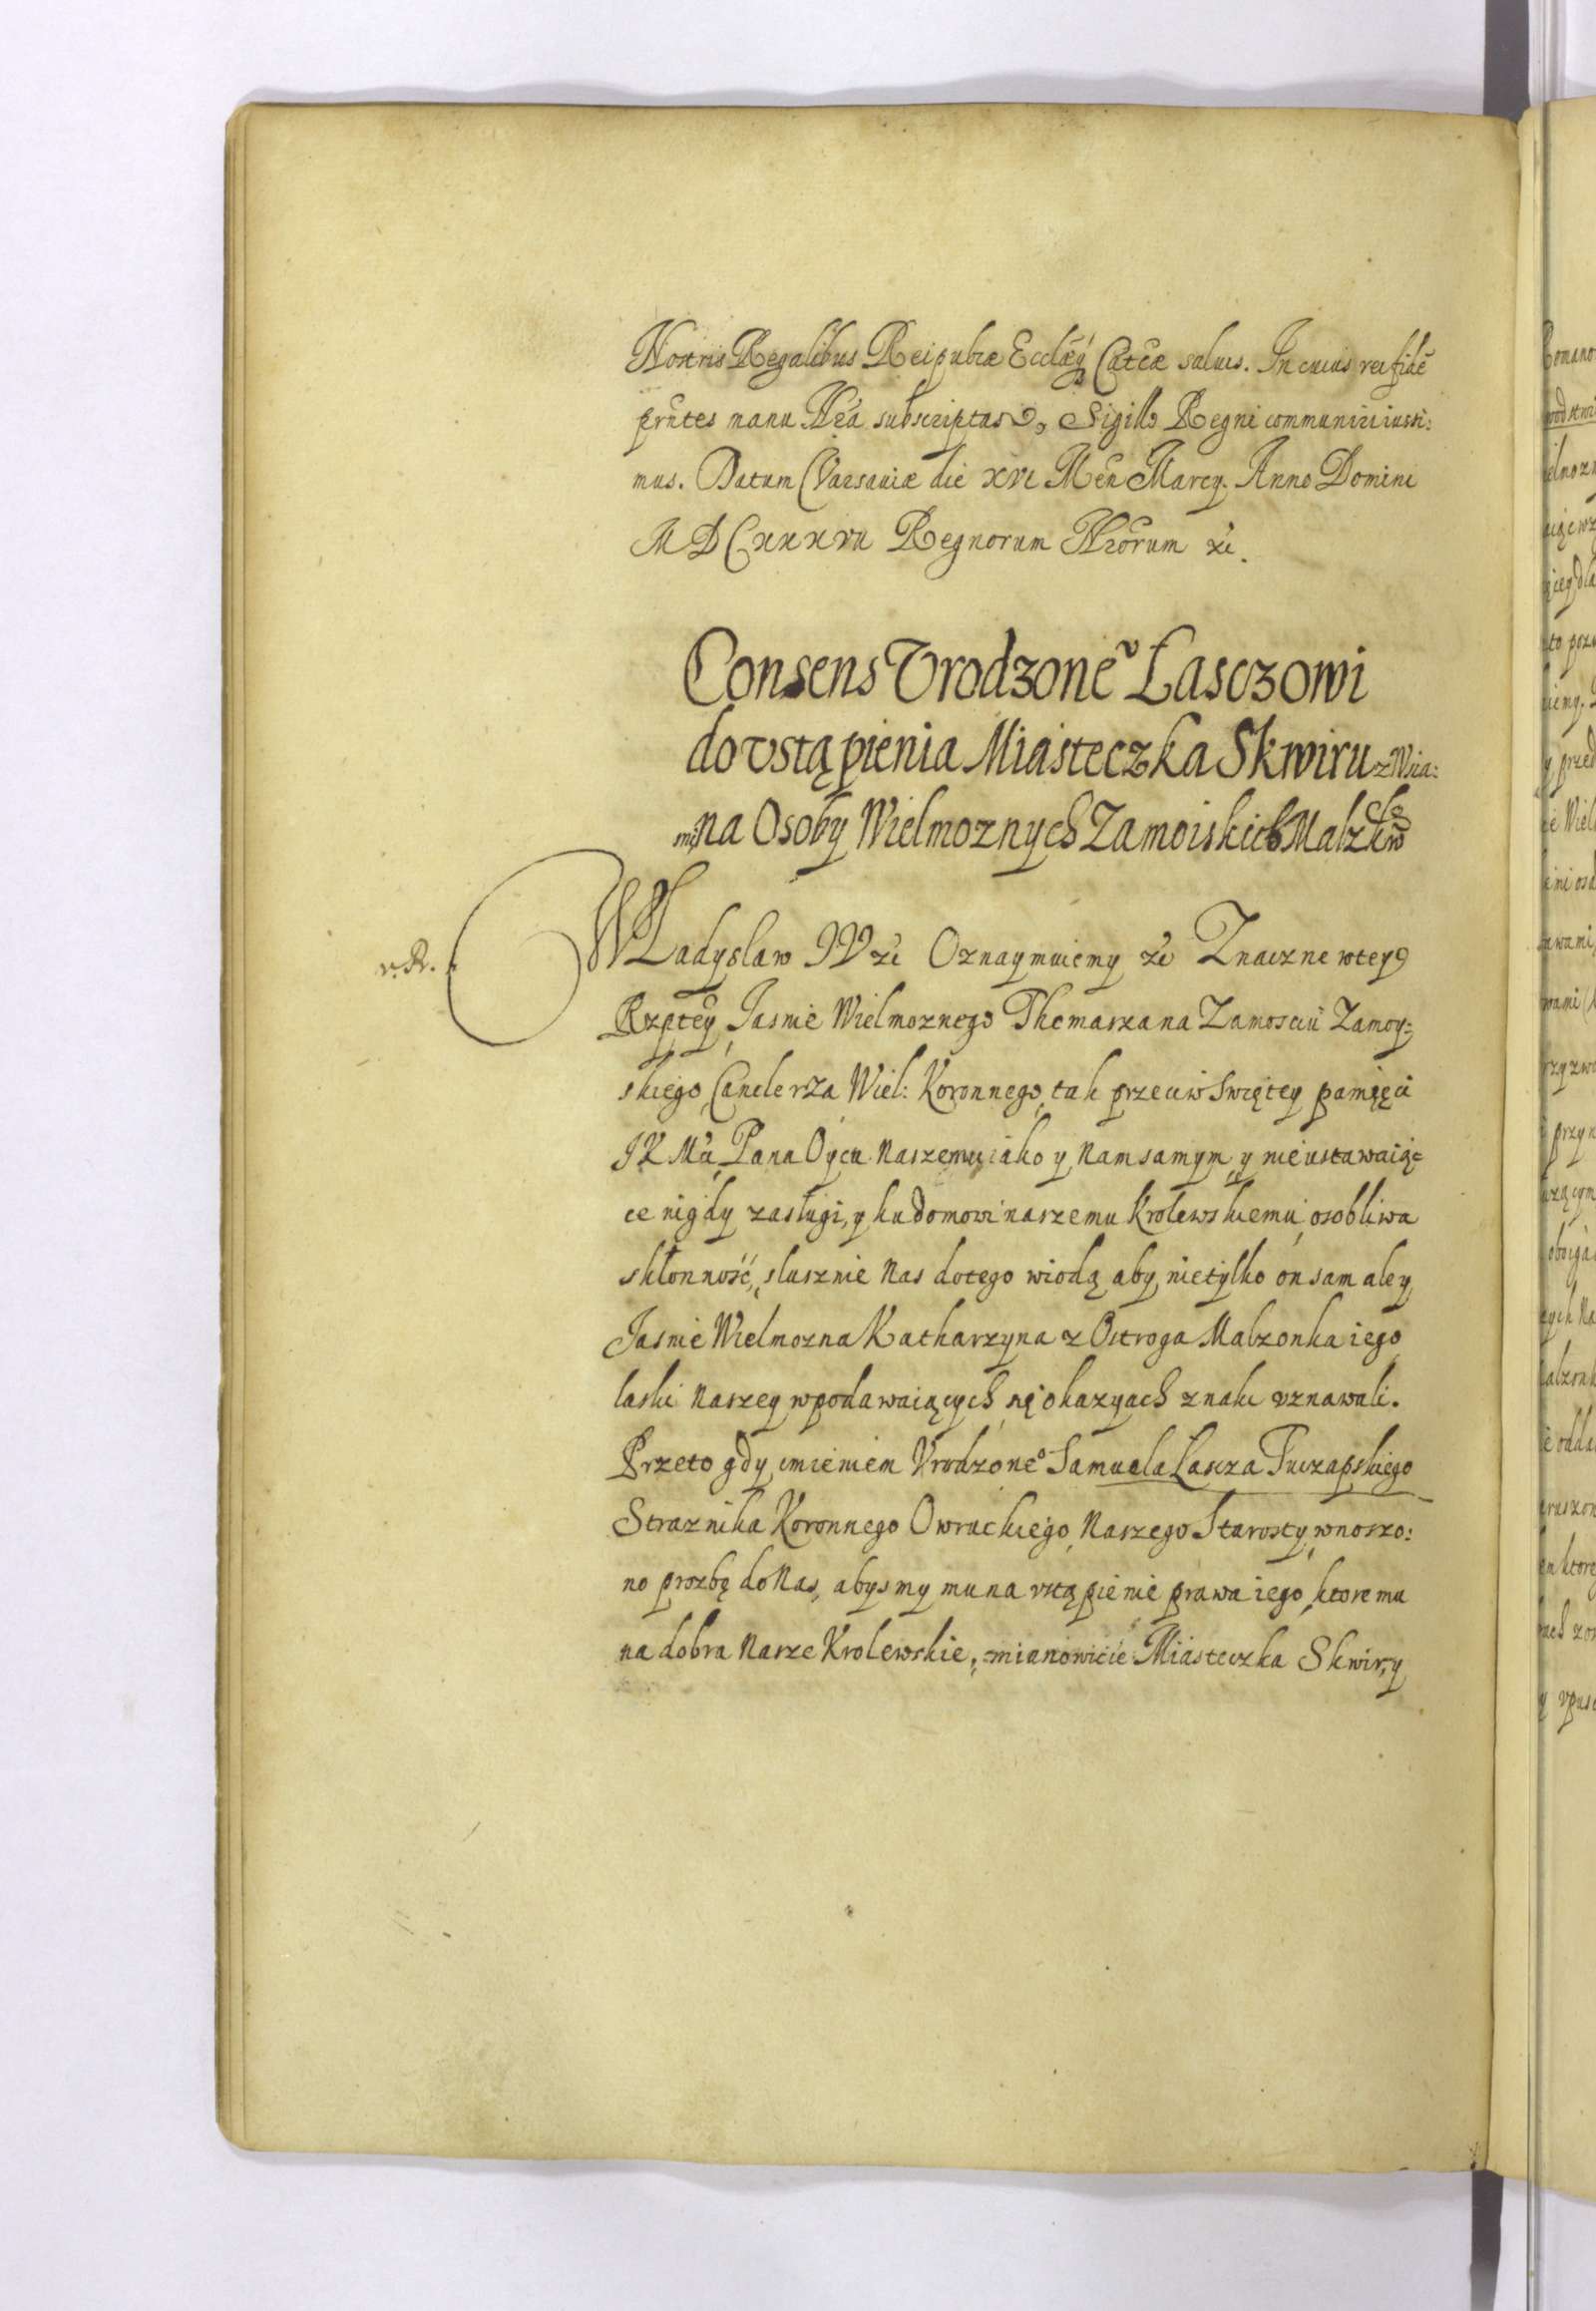 Nostris Regalibus Reipubcæ Ecclæq́ Catcæ saluis. In cuius rei fidē
prñtes manu Nrā subscriptas, Sigillo Regni communiri iussi:
mus. Datum Varsauiæ die XVI Men Marcy. Anno Domini
MDCXXXVII Regnorum Nrorum &c.
Consens Vrodzone° Lasczowi
do vstąpienia Miasteczka Skwiru z Wsia:
mi na Osoby Wielmoznych Zamoiskich Malzkw
v. R.
WLadyslaw IV &c Oznaymuiemy &c Znaczne w tey
Rzptey Jasnie Wielmoznego Thomasza na Zamosciu Zamoy:
skiego Canclerza Wiel: Koronnego, tak przeciw swiętey pamięci
IK Mci Pana Oyca Naszemu iako y Nam samym y nieustawaią
ce nigdy zasługi, y ku domowi naszemu Krolewskiemu osobliwa
skłonność, slusznie Nas do tego wiodą aby nietylko on sam ale y
Jasnie Wielmozna Katharzyna z Ostroga Malzonka iego
laski Naszey w podawaiących się okazyach znaki vznawali.
Przeto gdy imieniem Vrodzone° Samuela Lascza Tuczapskiego
Straznika Koronnego Owruckiego Naszego Starosty wnoszo:
no prozbę do Nas, abysmy mu na vstąpienie prawa iego ktore mu
na dobra Nasze Krolewskie, mianowicie Miasteczka Skwiry